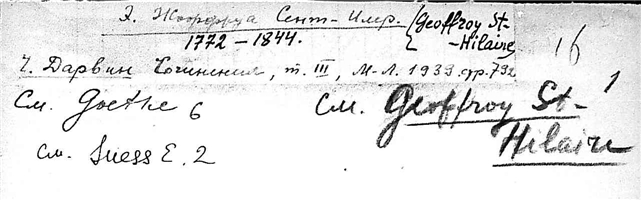 Э. Жоффруа Сент-Илер. (Geoffroy St-
-Hilaire)
1772-1844.
16
Ч. Дарвин Сочинения, т. III, М-Л. 1939. стр. 792
См. Goethe 6
См. Geoffroy St-
Hilaire
1
См. Suess E. 2